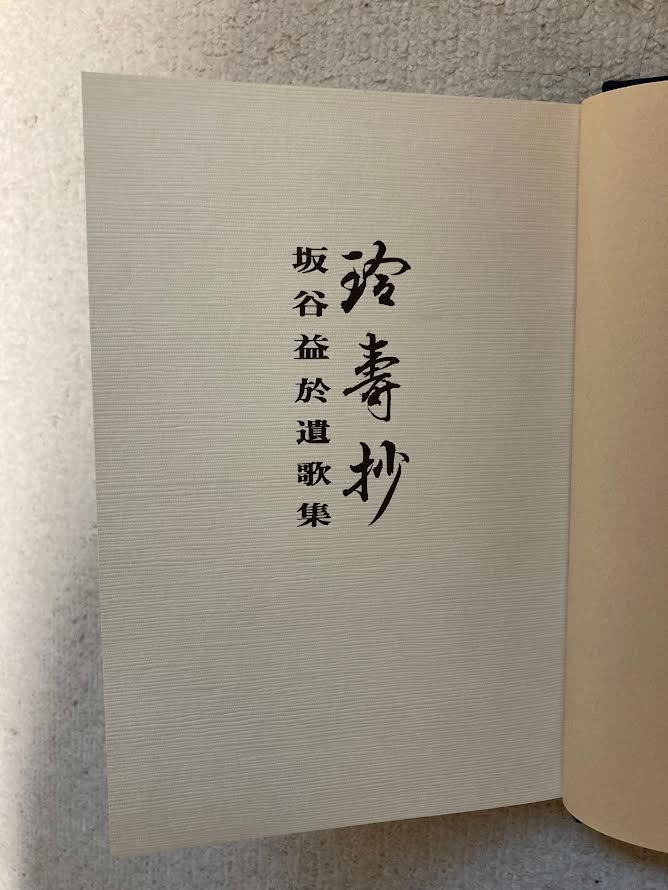 玲壽抄
坂谷益於遺歌集